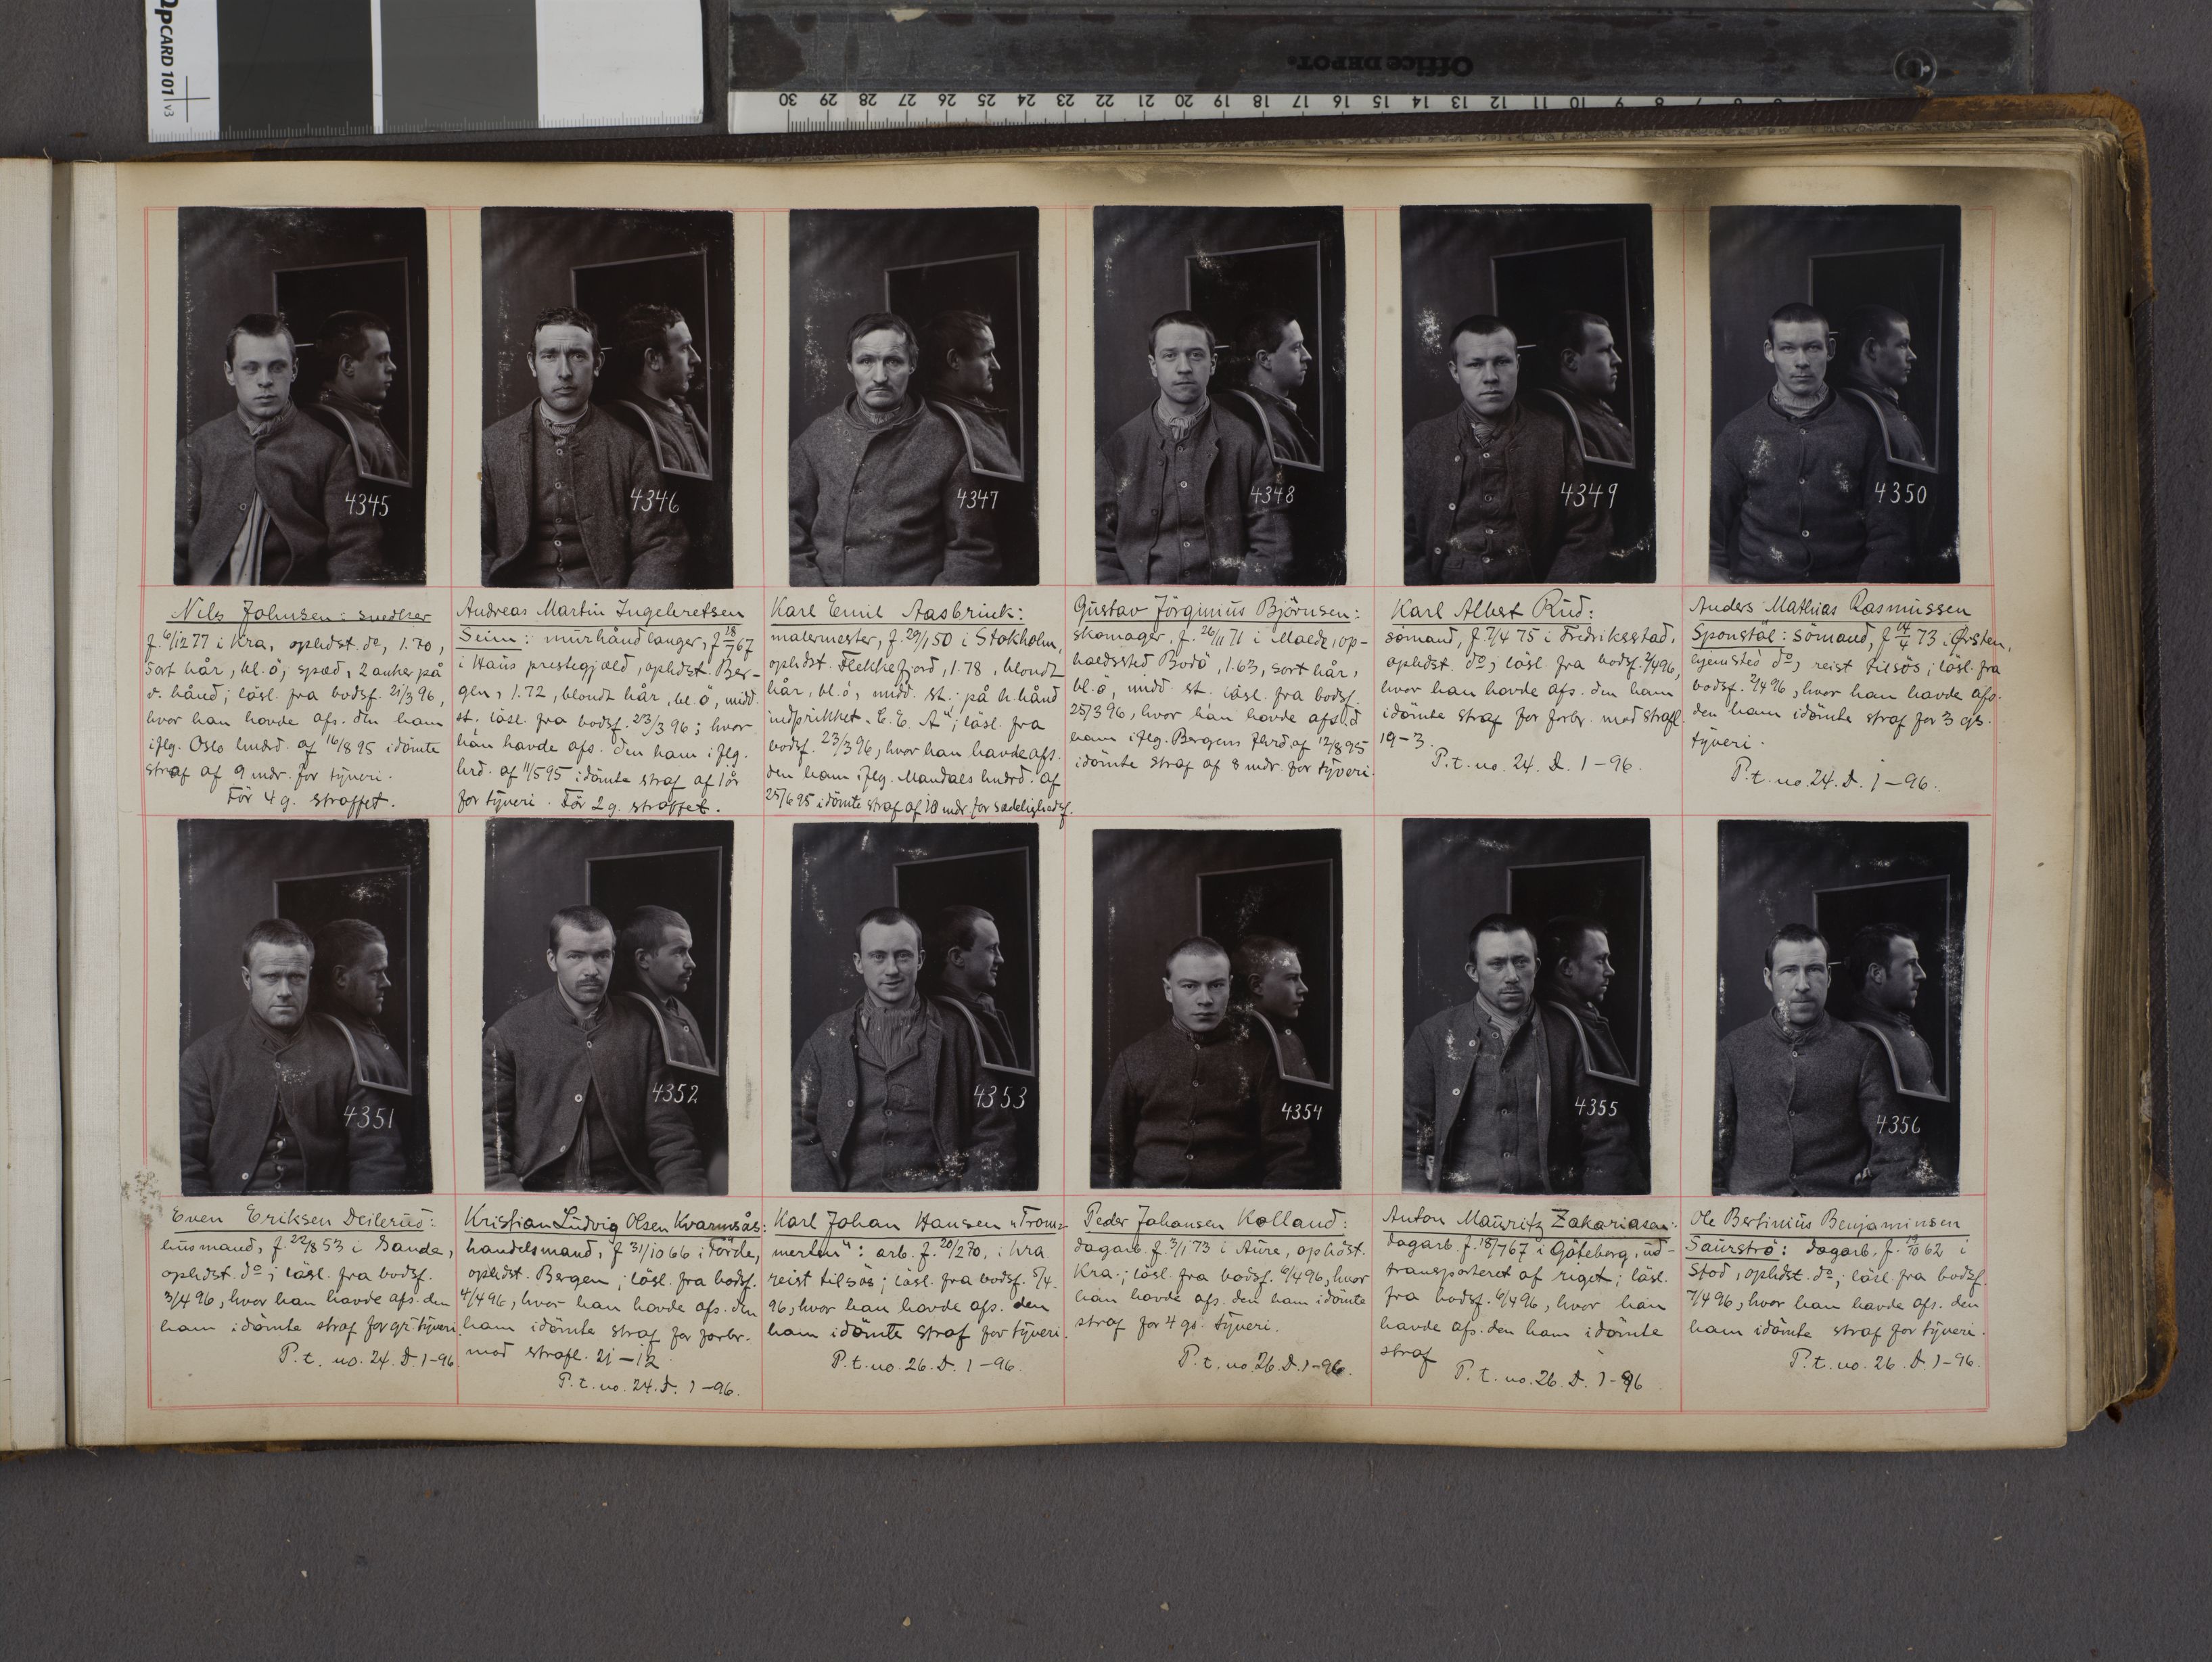 QPCARD 101 v3
Office DEPOT.
30 29 28 27 26 25 24 23 22 21 20 19 18 17 16 15 14 13 12 11 10 9 8 7 6 5
4345
4346
4347
4348
4349
4350
Nils Johnsen: snedker
f. 6/12 77 i Kra, opldst. do, 1.70,
sort hår, bl. ö; spæd, 2 anker på
v. hånd; lösl. fra bodsf. 21/3 96,
hvor han havde afs. den ham
iflg. Oslo lmdrd. af 16/8 95 idömte
straf af 9 mdr. for tyveri.
För 4 g. straffet.
Andreas Martin Ingebretsen
Seim: murhåndlanger, f. 18/7 67
i Haus prestegjæld, opldst. Ber-
gen, 1.72, blondt hår, bl. ö, midd.
st. lösl. fra bodsf. 23/3 96; hvor
han havde afs. den ham iflg.
hrd. af 11/5 95 idömte straf af 1 år
for tyveri. För 2 g. straffet.
Karl Emil Aasbrink:
malermester, f. 29/1 50 i Stokholm,
opldst. Flekkefjord, 1.78, blondt
hår, bl. ö, midd. st.: på h. hånd
indprikket "E. E. A"; lösl. fra
bodsf. 23/3 96, hvor han havde afs.
den ham iflg. Mandals lmdrd. af
25/6 95 idömte straf af 10 mdr for sædelighedsf.
Gustav Jörginius Björnsen:
skomager, f. 26/11 71 i Molde, op-
holdssted Bodö, 1.63, sort hår,
bl. ö, midd. st. lösl. fra bodsf.
25/3 96, hvor han havde afs. d
ham iflg. Bergens af 12/8 95
idömte straf af 8 mdr. for tyveri.
Karl Albert Rud:
sömand, f. 7/4 75 i Fredriksstad,
opldst. do; lösl. fra bodsf. 2/4 96,
hvor han havde afs. den ham
idömte straf for forbr. mod strafl.
19-3.
P.t. no. 24. D. 1-96.
Anders Mathias Rasmussen
Sponstål: sömand, f. 14/4 73 i Ørsten,
hjemsted do, reist tilsös; lösl. fra
bodsf. 2/4 96, hvor han havde afs.
den ham idömte straf for 3 gs.
tyveri.
P.t. no. 24. D. 1-96.
4351
4352
4353
4354
4355
4356
Even Eriksen Deilerud:
husmand, f. 22/8 53 i Sande,
opldst. do; lösl. fra bodsf.
3/4 96, hvor han havde afs. den
ham idömte straf for gr. tyveri.
P.t. no. 24. D. 1-96
Kristian Ludvig Olsen Kvamsås:
handelsmand, f. 31/10 66 i Förde,
opldst. Bergen; lösl. fra bodsf.
4/4 96, hvor han havde afs. den
ham idömte straf for forbr.
mod strafl. 21-12
P.t. no. 24. D. 1-96.
Karl Johan Hansen "Trom-
merlun": arb. f. 20/2 70, i Kra.
reist tilsös; lösl. fra bodsf. 5/4
96, hvor han havde afs. den
ham idömte straf for tyveri.
P.t. no. 26. D. 1-96.
Peder Johansen Kolland:
dagarb. f. 3/1 73 i Aure, opldst.
Kra.; lösl. fra bodsf. 6/4 96, hvor
han havde afs. den ham idömte
straf for 4 gs. tyveri.
P.t. no. 26. D. 1-96.
Anton Mauritz Zakariasen:
dagarb. f. 18/7 67 i Göteborg, ud-
transporteret af riget; lösl.
fra bodsf. 6/4 96, hvor han
havde afs. den ham idömte
straf
P.t. no. 26. D. 1-96
Ole Bertinius Benjaminsen
Saurströ: dagarb. f. 19/10 62 i
Stod, opldst. do; lösl. fra bodsf.
7/4 96, hvor han havde afs. den
ham idömte straf for tyveri.
P.t. no. 26. D. 1-96.